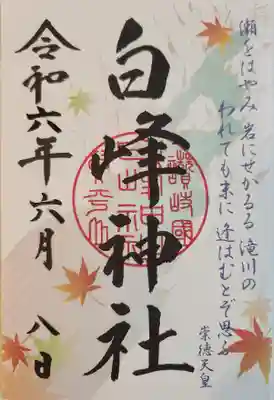 瀬をはやみ 岩にせかるる 滝川の
われても末に 逢はむとぞ思ふ
崇徳天皇
白峰神社
讃岐國
令和六年 六月 八日